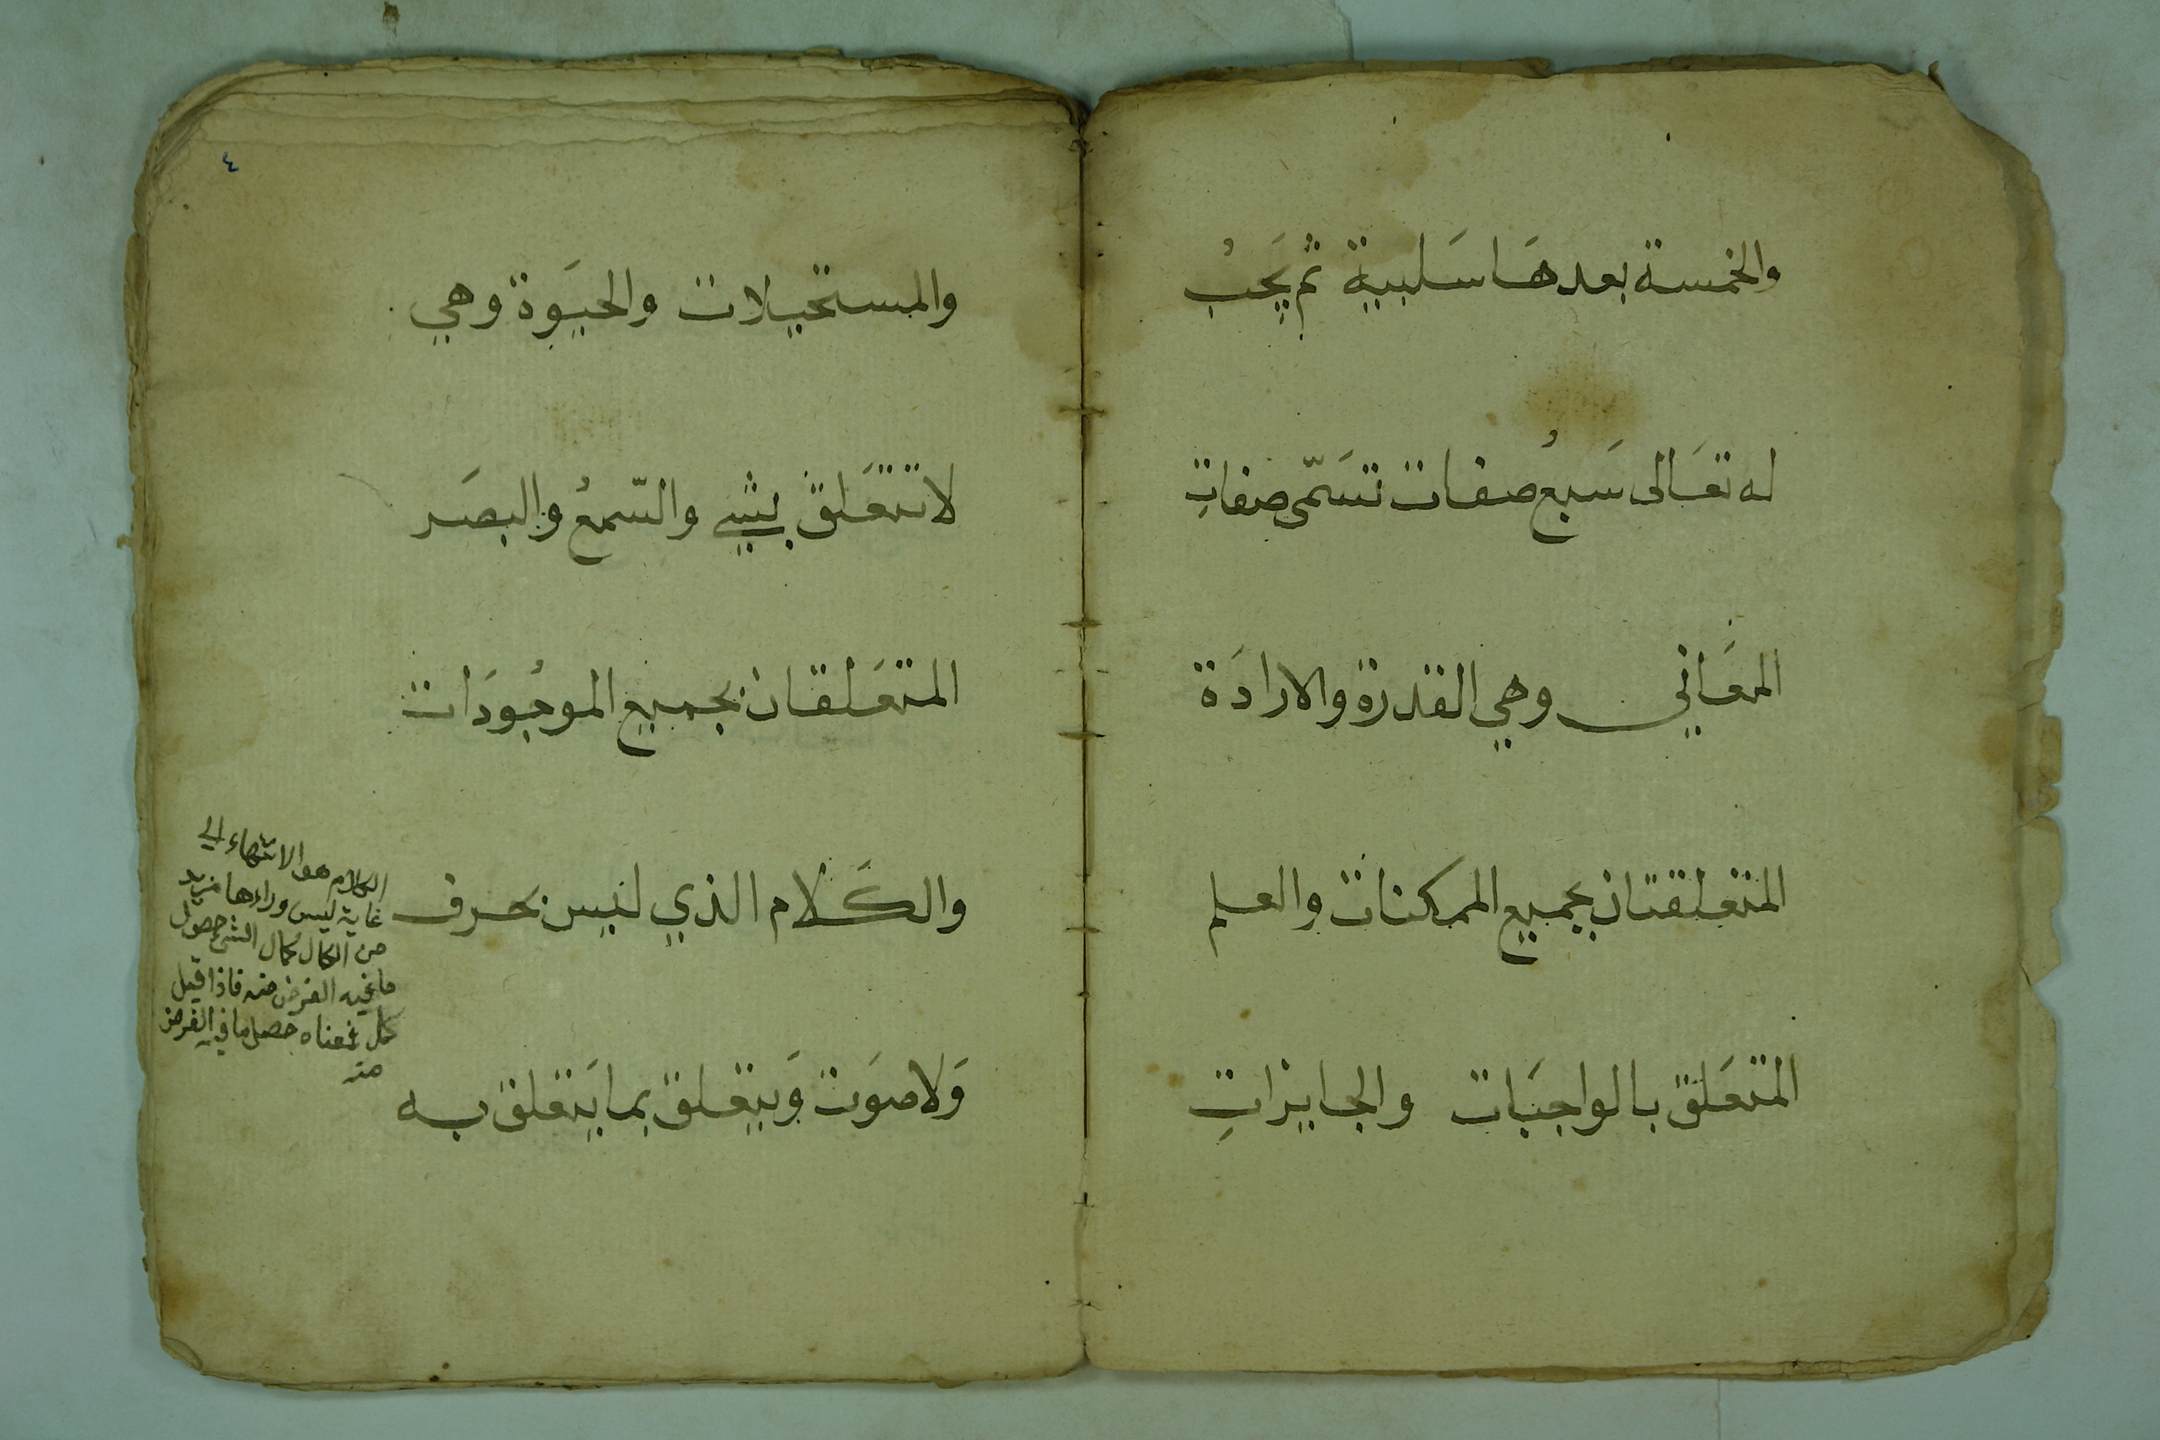 والخمسة بعدهَا سَلبية ثم يَجِبُ
له تعَالى سَبعُ صفات تسَمّى صفاتِ
المعَاني وهي القدرة والارادَة
المتعلقتان بجميع الممكنات والعلم
المتعَلق بالواجبَات والجايزاتِ
٤
والمستحيلات والحيَوة وهي
لا تتعَلق بشيء والسّمعُ والبصَر
المتعَلقان بجميع الموجُودَات
والكَلام الذي ليس بحرف
وَلا صوَت وَيتعلق بما يَتعلق به
الكلام هو الانتهاء الي
غاية ليس وراءها مزيد
من الكمال كمال الشئ حصول
ما فيه الغرض منه فاذا قيل
كمل فمعناه حصل ما في الغرض
منه